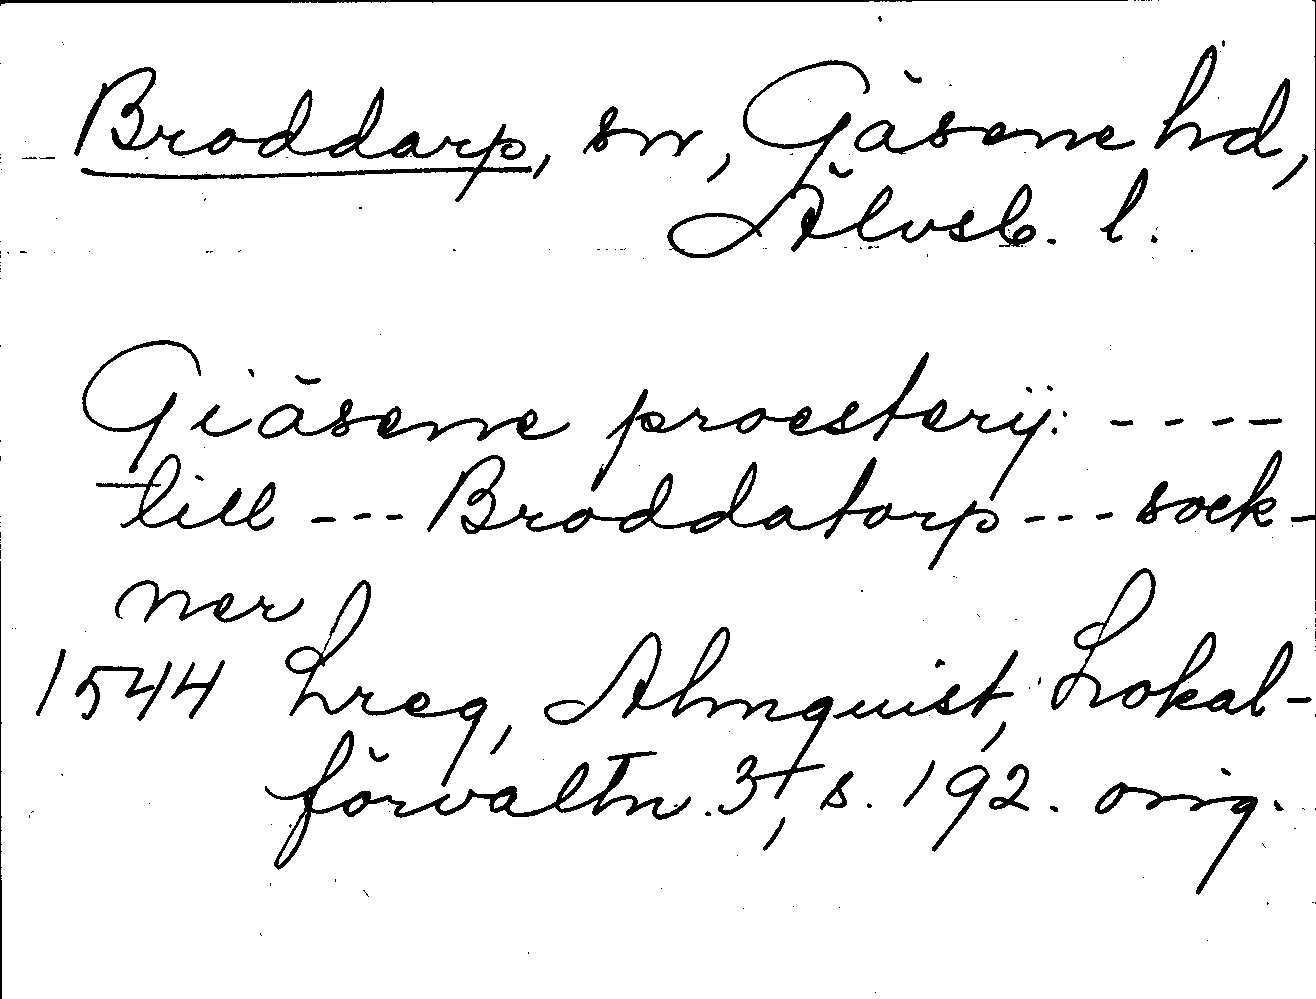 Broddarp, sn, Gäsene hd,
Älvsb. l.
Giäsene proesterij: ----
till --- Broddatorp --- sock-
ner
1544 Lreg, Almquist, Lokal-
förvaltn. 3, s. 192. orig.